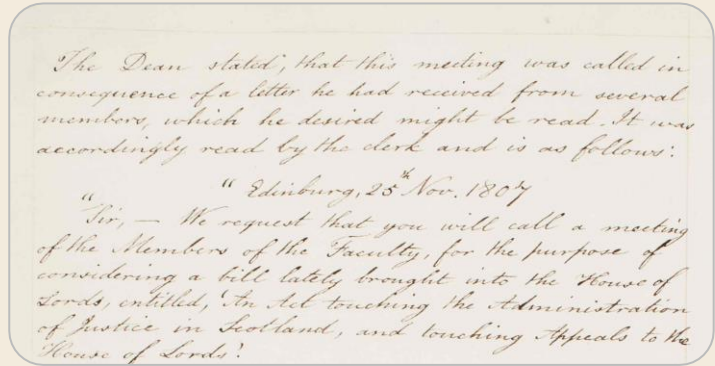 The Dean stated, that this meeting was called in
consequence of a letter he had received from several
members, which he desired might be read. It was
accordingly read by the clerk and is as follows:
" Edinburg, 25th Nov. 1807
" Sir, — We request that you will call a meeting
of the Members of the Faculty, for the purpose of
considering a bill lately brought into the House of
Lords, entitled, 'An Act touching the Administration
of Justice in Scotland, and touching Appeals to the
House of Lords'.